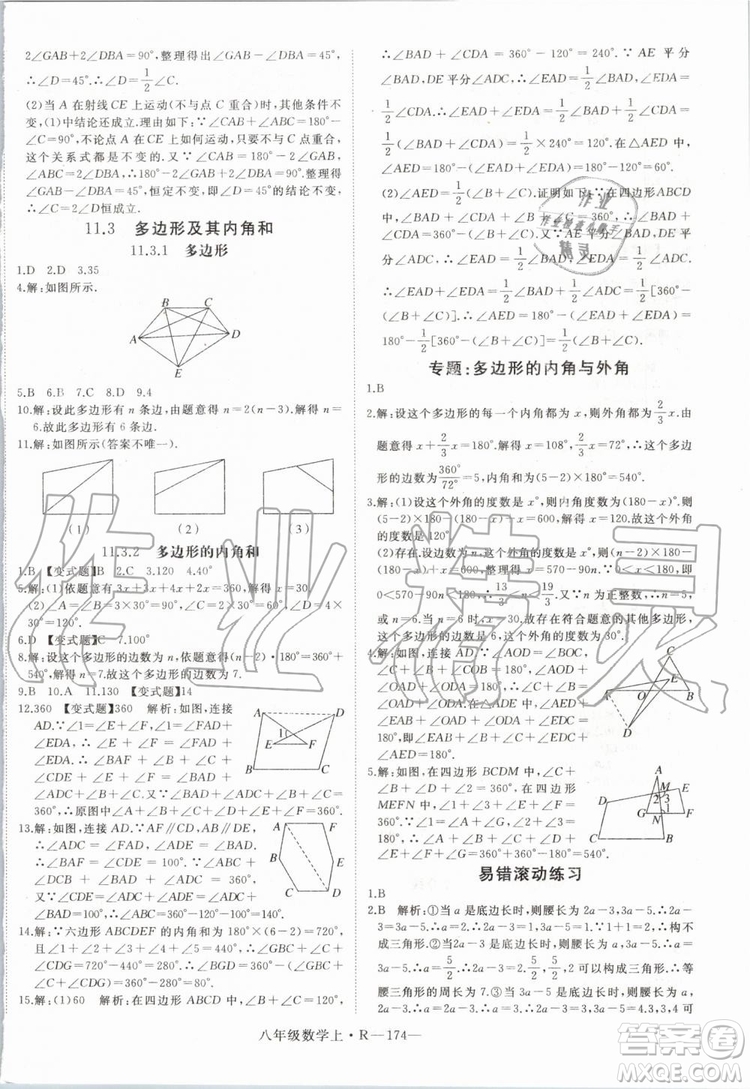 2∠GAB+2∠DBA=90°,整理得∠GAB+∠DBA=45°.
∴∠D=45°.∴∠D=1/2∠C.
(2)当 A 在射线 CE 上运动(不与点 C 重合)时,其他条件不
变,(1)中结论还成立.理由如下:∵∠CAB+∠ABC=180°-
∠C=90°,不论点 A 在 CE 上如何运动,只要不与点 C 重合,
这个关系式都是不变的.又∵∠CAB=180°-2∠GAB,
∠ABC=180°-2∠DBA,∴180°-2∠GAB+180°-2∠DBA=
90°,整理得∠GAB+∠DBA=135°,恒定不变,即∠D=45°
恒定不变,∴∠D=1/2∠C恒成立.
11.3 多边形及其内角和
11.3.1 多边形
1.D 2.D 3.35
4.解:如图所示.
B C
A D
E
5.B 6.B 7.C 8.D 9.4
10.解:设此多边形有 n 条边,由题意得 n=2(n-3),解得 n=
6.故此多边形有 6 条边.
11.解:如图所示(答案不唯一).
(1) (2) (3)
11.3.2 多边形的内角和
1.B 【变式题】B 2.C 3.120 4.40°
5.解:(1)依题意有 3x+3x+4x+2x=360°,解得 x=30°.
6.D 【变式题】C 7.100°
8.解:设这个多边形的边数为 n,依题意得(n-2)·180°=360°+
540°,解得 n=7.故这个多边形的边数为 7.
9.B 10.A 11.130 【变式题】14
12.360 【变式题】360 解析:如图,连接
AD.∵∠1=∠E+∠F,∠1=∠FAD+
∠EDA,∴∠E+∠F=∠FAD+
∠EDA,∴∠BAF+∠B+∠C+
∠CDE+∠E+∠F=∠BAD+∠B+
∠C+∠CDA.又∵∠BAD+∠B+∠C+∠CDA=
360°,∴原图中∠A+∠B+∠C+∠D+∠E+∠F=360°.
A D
1
E F
B C
13.解:如图,连接 AD.∵AF∥CD,AB∥DE,
∴∠FAD=∠ADC,∠BAD=∠ADE,
∴∠BAF=∠CDE=120°.∵∠ABC+
∠BAD+∠ADC+∠C=360°,∴∠ABC+
∠BAF+∠C=360°,∴∠C=360°-120°-
90°=150°.
A F
B E
C D
14.解:∵六边形 ABCDEF 的内角和为 180°×(6-2)=720°,且
∠1+∠2+∠3+∠4+∠5=450°,∴∠GBC+∠C+
∠CDG=720°-450°=270°,∴∠G=360°-(∠GBC+∠C+
∠CDG)=90°.
15.解:(1)60 解析:在四边形 ABCD 中,∵∠B+∠C=120°,
∴∠BAD+∠CDA=360°-120°=240°.∵AE 平分
∠BAD,DE 平分∠CDA,∴∠EAD=1/2∠BAD,∠EDA=
1/2∠CDA,∴∠AED=180°-(∠EAD+∠EDA)=180°-
1/2(∠BAD+∠CDA)=180°-1/2×240°=60°.
(2)∠AED=1/2(∠B+∠C).证明如下:在四边形ABCD
中,∠BAD+∠CDA=360°-(∠B+∠C).∵AE 平分
∠BAD,DE 平分∠CDA,∴∠EAD=1/2∠BAD,∠EDA=
1/2∠CDA,∴∠EAD+∠EDA=1/2∠BAD+1/2∠CDA=1/2[360°-
(∠B+∠C)],∴∠AED=180°-(∠EAD+∠EDA)=180°-1/2[360°-
(∠B+∠C)]=1/2(∠B+∠C).
专题:多边形的内角与外角
1.B
2.解:设这个多边形的一个内角为 x°,则外角度数为2/3x°.由
题意得 x+2/3x=180°,解得 x=108°,2/3x=72°,∴这个多边
形的边数为360°/72°=5,内角和为 180°×(5-2)=540°.
3.解:(1)设这个外角的度数是 x°,则内角度数为(180-x)°.由题意得
(5-2)×180-(180-x)+x=600,解得x=120.故这个外角
的度数为120°.
(2)存在.设这个外角的度数是 x°,则内角度数为(180-x)°.由题意得
(n-2)×180-(180-x)+x=600,整理得x=570-90n.∵0<x<180,即
0<570-90n<180,∴13/3<n<19/3.又∵n 为正整数,∴n=5或
n=6.当 n=6 时,x=570-90×6=30,故存在符合题意的其他
多边形,它的边数为 6,这个外角的度数为 30°.
4.解:如图,连接 AD.∵∠AOD=∠BOC,
∠C+∠B+∠BOC=∠OAD+
∠ODA+∠AOD=180°,∴∠B+∠C=
∠OAD+∠ODA,∴∠A+∠B+∠C+
∠D+∠E=∠OAE+∠OAD+∠ODA+
∠ODE+∠E=∠EAD+∠EDA+
∠E=180°.
C
B
O E
A
D
5.解:如图,在四边形 BCDM 中,∠C+
∠B+∠D+∠2=360°.在四边形
MEFN 中,∠1+∠3+∠E+∠F=360°.
∵∠1=∠A+∠G,∠2+∠3=180°,
∴∠A+∠B+∠C+∠D+∠E+
∠F+∠G=360°+360°-180°=540°.
易错滚动练习
1.B
2.B 解析:①当 a 是底边长时,则腰长为 2a-3,3a-5.∵2a-
3=3a-5,∴a=2,2a-3=3a-5=1.∵1+1=2,∴不能构
成三角形.②当 2a-3 是底边长时,则腰长为 a,3a-5.∵a=
3a-5,∴a=5/2,2a-3=2.∵5/2,5/2,2 可以构成三角形,∴三
角形的周长为 7.③当 3a-5 是底边长时,则腰长为 a,2a-
3.∵a=2a-3,∴a=3,3a-5=4.∵3,3,4 可以
八年级数学上·R—174—
作业精灵
答案圈
MXQE.COM